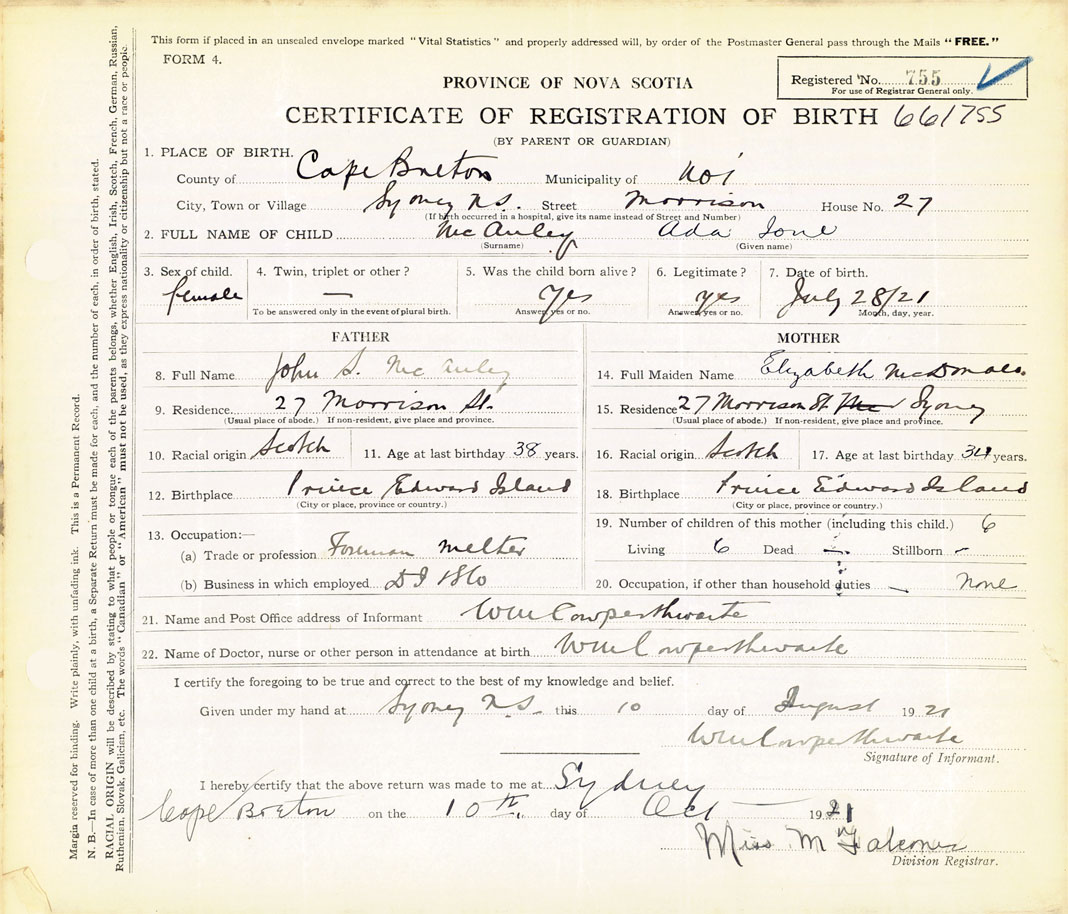 This form if placed in an unsealed envelope marked "Vital Statistics" and properly addressed will, by order of the Postmaster General pass through the Mails "FREE."
FORM 4.
Registered No. 755
For use of Registrar General only.
PROVINCE OF NOVA SCOTIA
CERTIFICATE OF REGISTRATION OF BIRTH 661755
(BY PARENT OR GUARDIAN)
1. PLACE OF BIRTH.
County of Cape Breton Municipality of No 1
City, Town or Village Sydney N.S. Street Morrison House No. 27
(If birth occurred in a hospital, give its name instead of Street and Number)
2. FULL NAME OF CHILD McAuley Ada Ione
(Surname) (Given name)
3. Sex of child. 4. Twin, triplet or other? 5. Was the child born alive? 6. Legitimate? 7. Date of birth.
female — Yes yes July 28/21
To be answered only in the event of plural birth. Answer yes or no. Answer yes or no. Month, day, year.
FATHER
8. Full Name John S. McAuley
9. Residence 27 Morrison St.
(Usual place of abode.) If non-resident, give place and province.
10. Racial origin Scotch 11. Age at last birthday 38 years.
12. Birthplace Prince Edward Island
(City or place, province or country.)
13. Occupation:—
(a) Trade or profession Foreman Melter
(b) Business in which employed
MOTHER
14. Full Maiden Name Elizabeth McDonald
15. Residence 27 Morrison St Sydney
(Usual place of abode.) If non-resident, give place and province.
16. Racial origin Scotch 17. Age at last birthday 34 years.
18. Birthplace Prince Edward Island
(City or place, province or country.)
19. Number of children of this mother (including this child.) 6
Living 6 Dead — Stillborn —
20. Occupation, if other than household duties — None
21. Name and Post Office address of Informant Wm Cowperthwaite
22. Name of Doctor, nurse or other person in attendance at birth Wm Cowperthwaite
I certify the foregoing to be true and correct to the best of my knowledge and belief.
Given under my hand at Sydney N.S. this 10 day of August 1921
Wm Cowperthwaite
Signature of Informant.
I hereby certify that the above return was made to me at Sydney
Cape Breton on the 10th. day of Oct — 1921
Miss M Falconer
Division Registrar.
Margin reserved for binding. Write plainly, with unfading ink. This is a Permanent Record.
N. B.—In case of more than one child at a birth, a Separate Return must be made for each, and the number of each, in order of birth, stated.
RACIAL ORIGIN will be described by stating to what people or tongue each of the parents belongs, whether English, Irish, Scotch, French, German, Russian,
Ruthenian, Slovak, Galician, etc. The words "Canadian" or "American" must not be used, as they express nationality or citizenship but not a race or people.